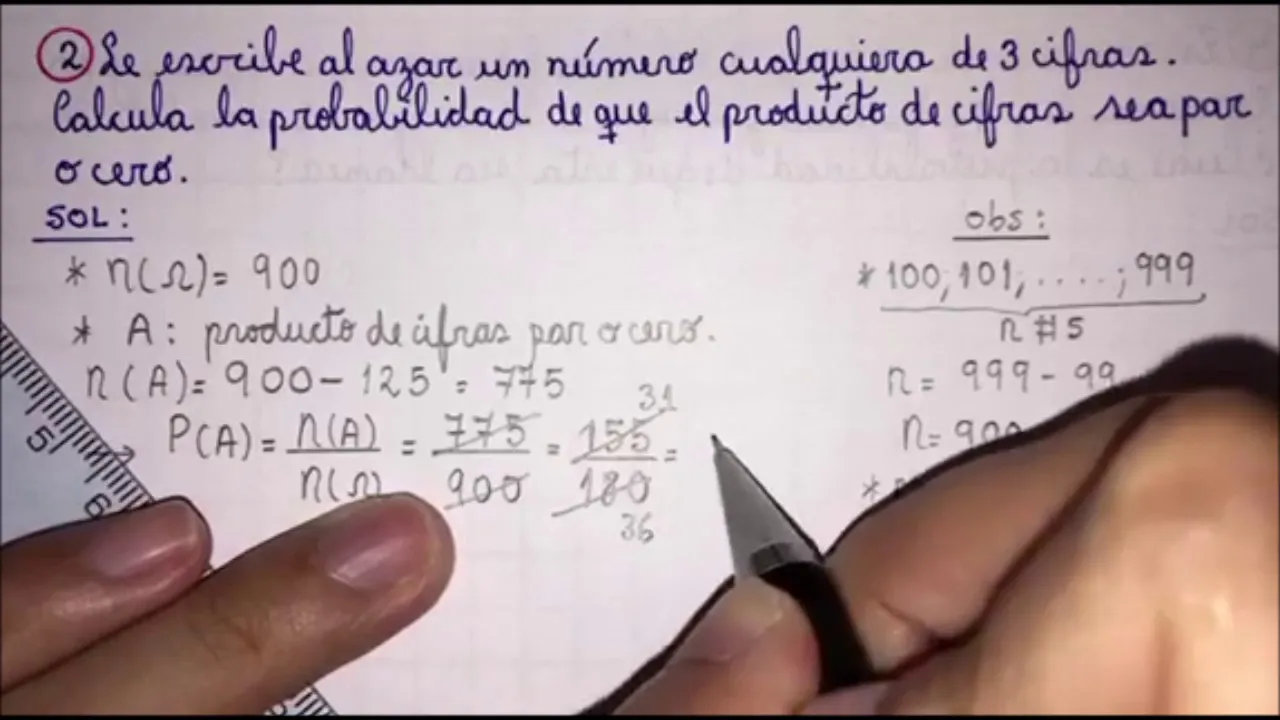 ② Se escribe al azar un número cualquiera de 3 cifras.
Calcula la probabilidad de que el producto de cifras sea par
o cero.
SOL:
* n(Ω)= 900
* A: producto de cifras par o cero.
n(A)= 900 - 125 = 775
31
P(A)= n(A)/n(Ω) = 775/900 = 155/180 =
36
obs:
* 100; 101; ....; 999
n #s
n = 999 - 99
n= 900
*
5
6